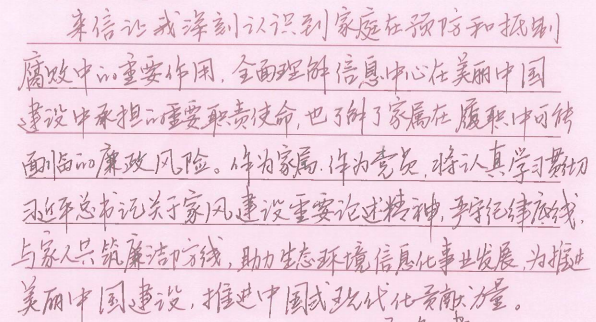 来信让我深刻认识到家庭在预防和抵制
腐败中的重要作用,全面理解信息中心在美丽中国
建设中承担的重要职责使命,也了解了家属在履职中可能
面临的廉政风险。作为家属、作为党员,将认真学习贯彻
习近平总书记关于家风建设重要论述精神,严守纪律底线,
与家人共筑廉洁防线,助力生态环境信息化事业发展,为推进
美丽中国建设,推进中国式现代化贡献力量。